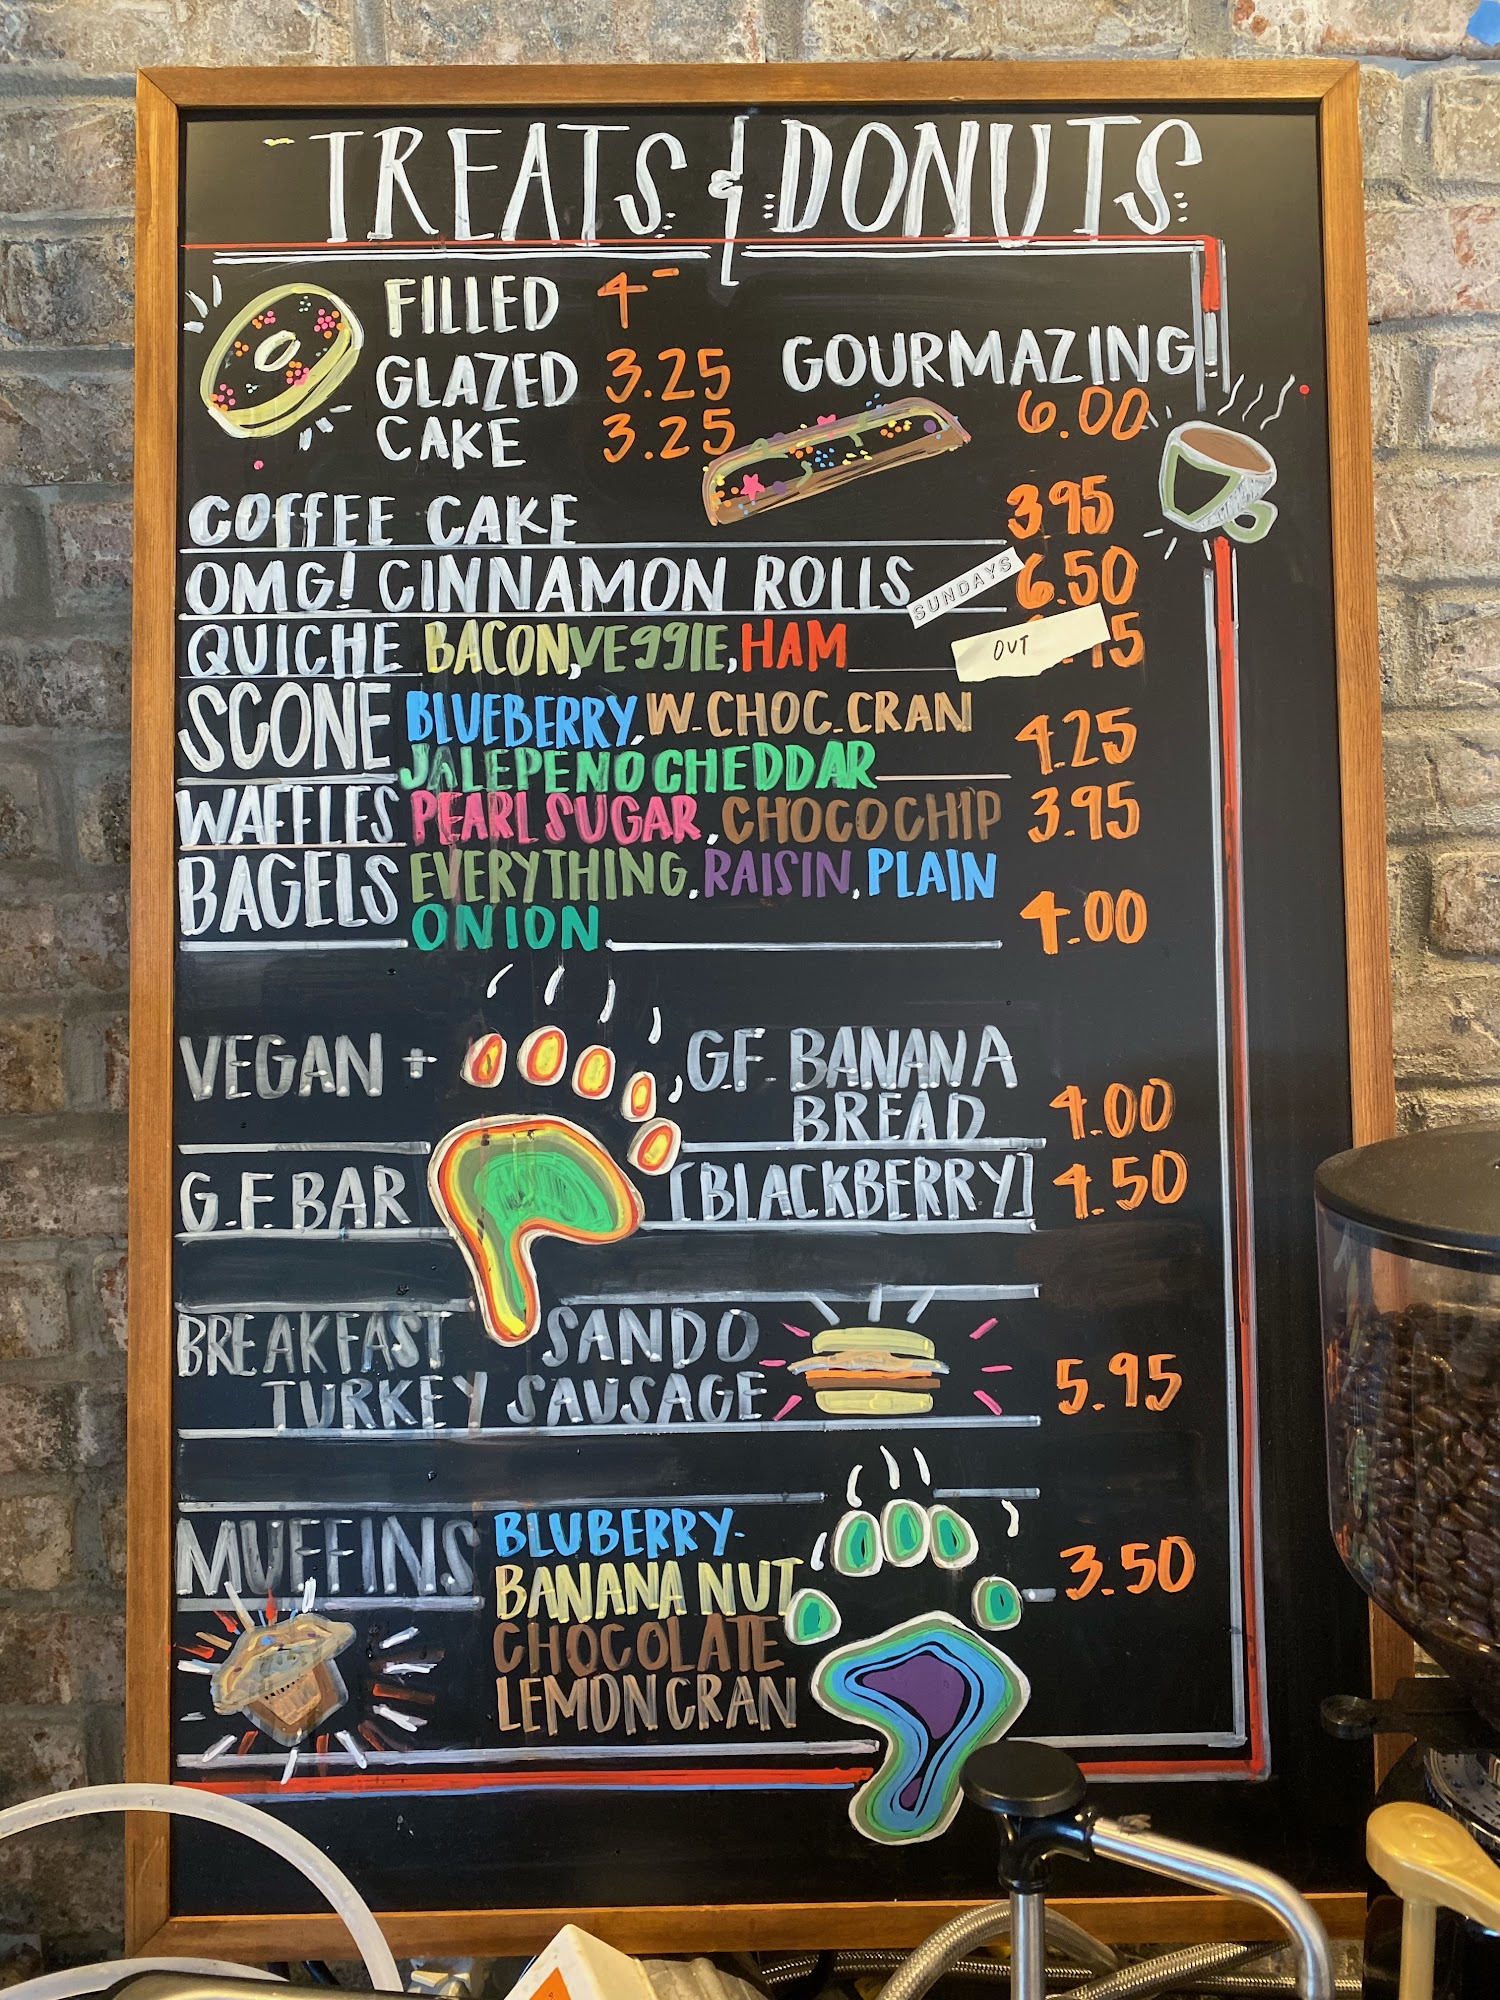 TREATS & DONUTS
FILLED 4-
GLAZED 3.25
CAKE 3.25
GOURMAZING!
6.00
COFFEE CAKE 3.95
OMG! CINNAMON ROLLS SUNDAYS 6.50
QUICHE BACON, VEGGIE, HAM OUT
SCONE BLUEBERRY, W.CHOC.CRAN
JALEPENO CHEDDAR 4.25
WAFFLES PEARL SUGAR, CHOCO CHIP 3.95
BAGELS EVERYTHING, RAISIN, PLAIN
ONION 4.00
VEGAN + GF. BANANA
BREAD 4.00
G.F. BAR [BLACKBERRY] 4.50
BREAKFAST SANDO
TURKEY SAUSAGE 5.95
MUFFINS BLUBERRY-
BANANA NUT 3.50
CHOCOLATE
LEMON CRAN